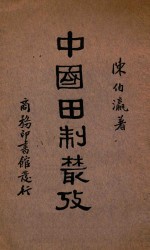 陳伯瀛著
中國田制叢攷
商務印書館發行